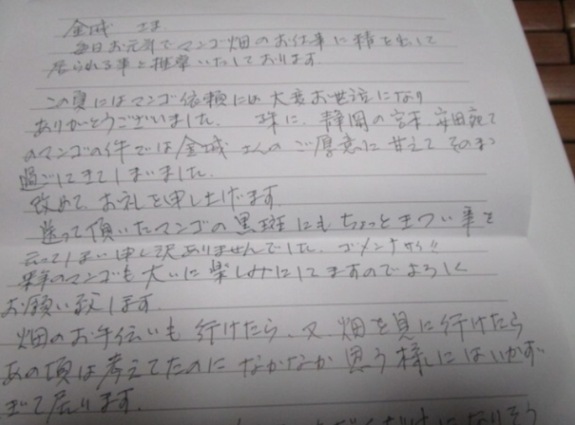 金城 さま
毎日お元気でマンゴ畑のお仕事に精を出して
居られる事と推察いたしております
この夏にはマンゴ依頼には大変お世話になり
ありがとうございました。 殊に、静岡の宮本、安田宛て
のマンゴの件では金城さんのご厚意に甘えてそのまゝ
過ごしてきてしまいました。
改めてお礼を申し上げます。
送って頂いたマンゴの黒斑にもちょっときつい事を
云ってしまい申し訳ありませんでした。ゴメンナサイ!!
来年のマンゴも大いに楽しみにしてますのでよろしく
お願い致します。
畑のお手伝いも行けたら、又畑を見に行けたら
あの頃は考えてたのになかなか思う様にはいかず
きて居ります。